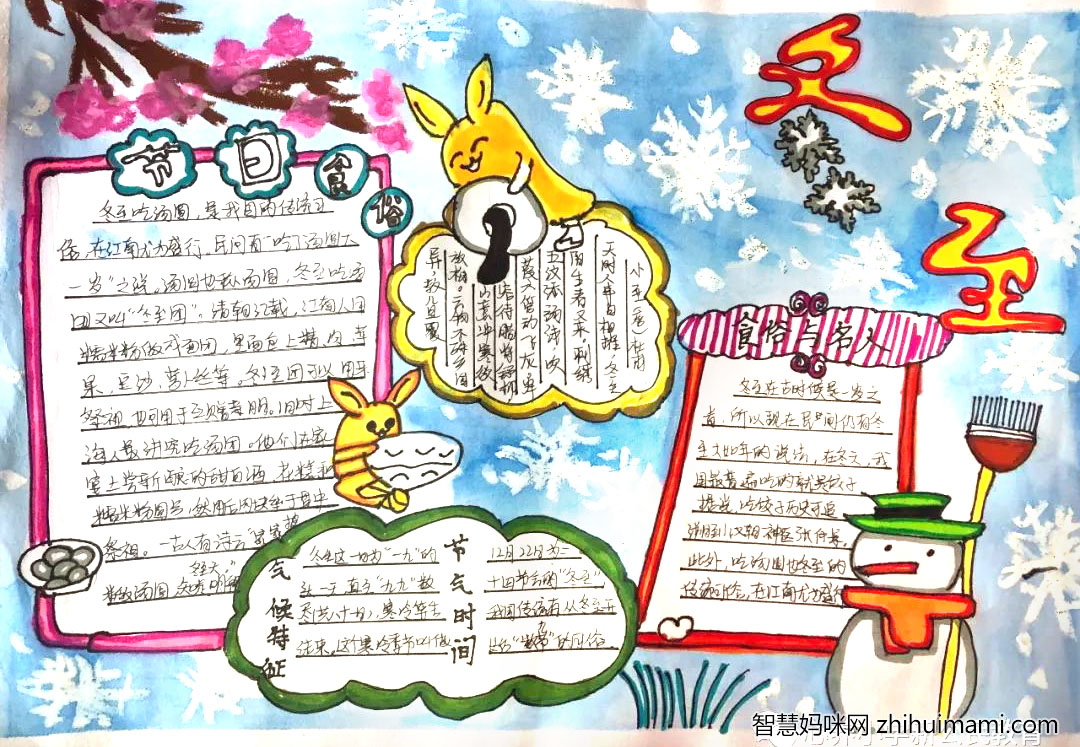 冬至
节日食俗
冬至吃汤圆，是我国的传统习
俗，在江南尤为盛行，民间有"吃了汤圆大
一岁"之说，汤圆也称汤团，冬至吃汤
团又叫"冬至团"。清朝记载，江南人用
糯米粉做成面团，里面包上精肉、苹
果、豆沙、萝卜丝等。冬至团可以用于
祭祖，也可用于互赠亲朋。旧时上
海人最讲究吃汤团。他们在家
宴上尝新酿的甜白酒、花糕和
糯米粉圆子，然后用肉块垒于盘中
祭祖。古人有诗云"家家捣
米做汤圆
小至
天时人事日相催，冬至
阳生春又来。刺绣
五纹添弱线，吹
葭六管动飞灰。岸
容待腊将舒柳
山意冲寒欲
放梅。云物不殊乡国
异，教儿且覆
气候特征
冬至这一日为"一九"的
头一天，真言"九九"数
寒冷等主
往来。这个寒冷季节叫做
节气时间
12月22日为二
十四节气的"冬至"
我国传统有从冬至开
的风俗
食俗与名人
冬至在古时候是一岁之
首，所以现在民间仍有冬
至大如年的说法，在冬天，我
国最普遍吃的就是饺子
据说，吃饺子历史可追
溯到汉朝神医张仲景。
此外，吃汤圆也冬至的
传统习俗，在江南尤为盛行
智慧妈咪网 zhihuimami.com